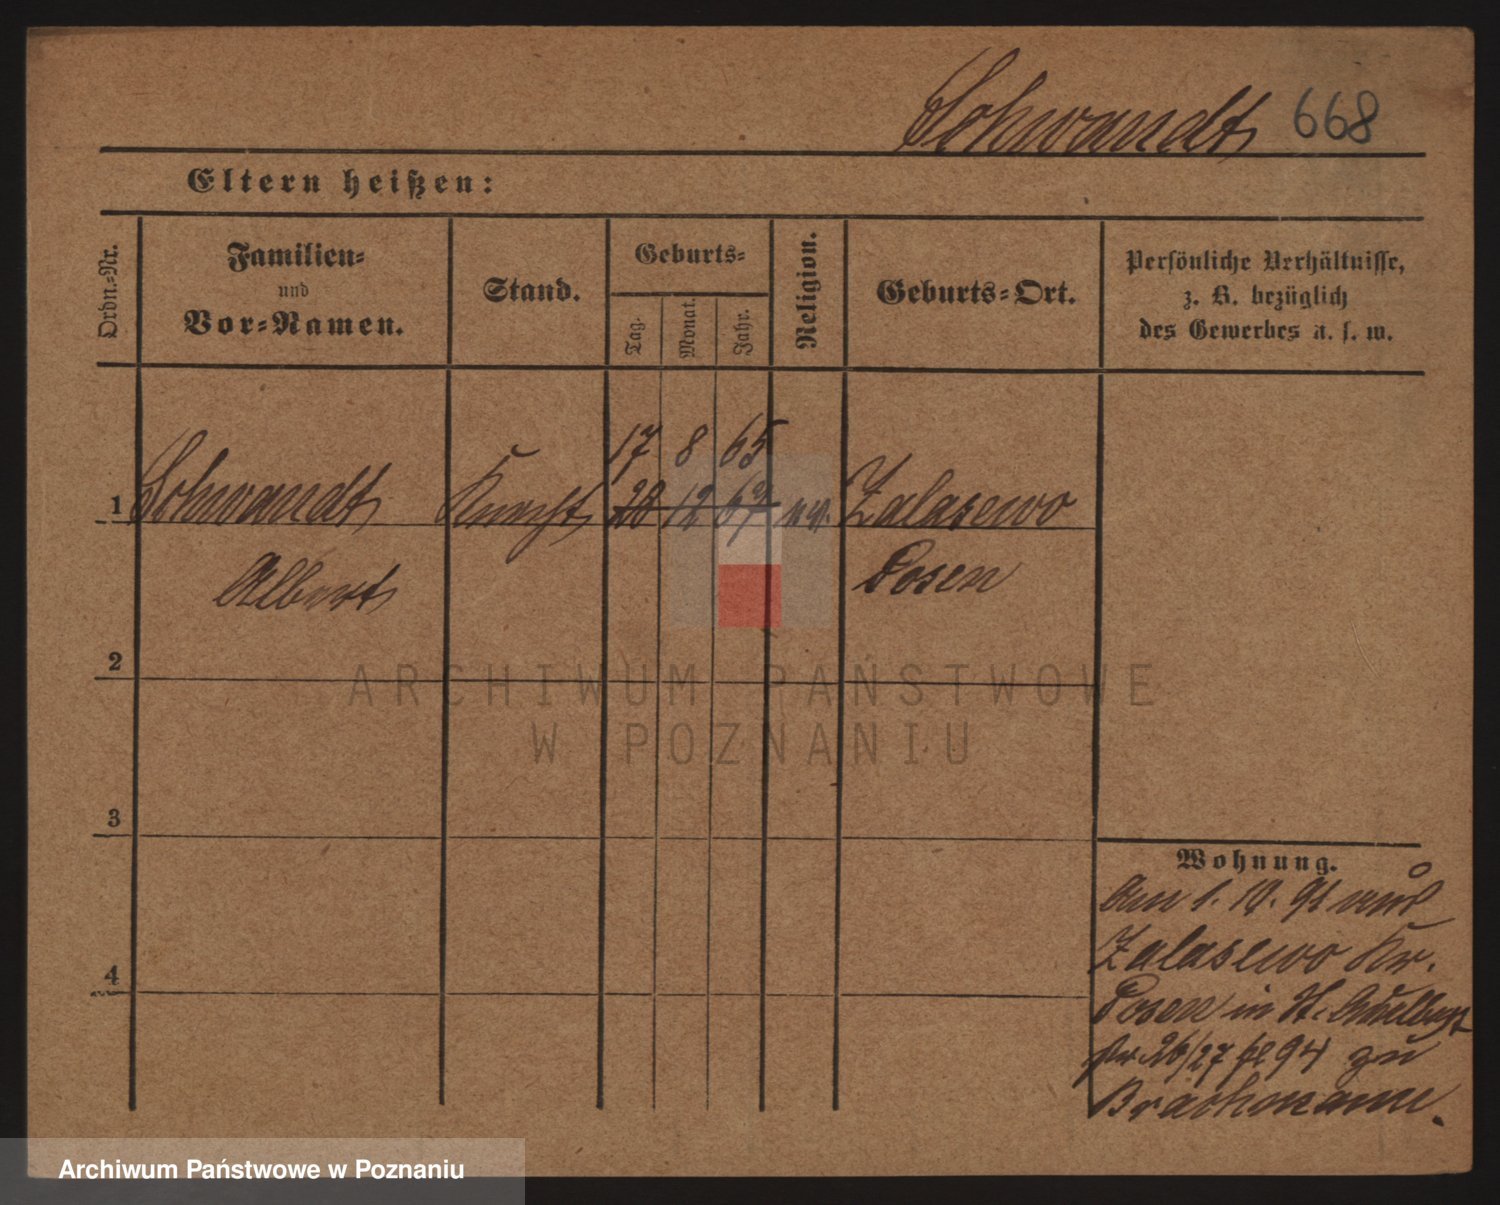 Schwandt 668
Eltern heißen:
Ordn.-Nr.
Familien-
und
Vor-Namen.
Stand.
Geburts-
Tag.
Monat.
Jahr.
Religion.
Geburts-Ort.
Persönliche Verhältnisse,
z. B. bezüglich
des Gewerbes u. s. w.
17 8 65
1 Schwandt Knecht 28 12 67 Zalasewo
Albert Posen
2
3
4
Wohnung.
Am 1. 10. 91 von
Zalasewo Kr.
Posen in St.
26/27 94 zu
Brachmann.
ARCHIWUM PAŃSTWOWE
W POZNANIU
Archiwum Państwowe w Poznaniu